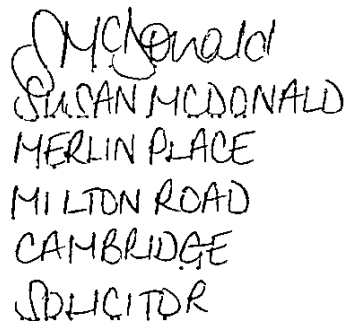 SMcDonald
SUSAN MCDONALD
MERLIN PLACE
MILTON ROAD
CAMBRIDGE
SOLICITOR